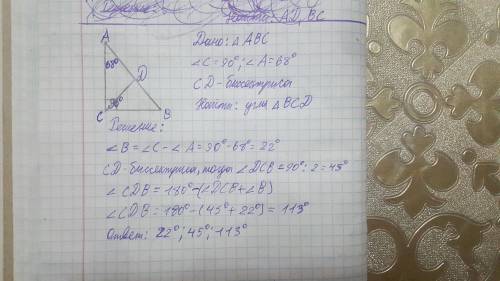 Найти: AD, BC
A
68°
D
C
90°
B
Дано: △ ABC
∠C = 90°; ∠A = 68°
CD - биссектриса
Найти: углы △ BCD
Решение:
∠B = ∠C - ∠A = 90° - 68° = 22°
CD - биссектриса, тогда ∠DCB = 90° : 2 = 45°
∠CDB = 180° - (∠DCB + ∠B)
∠CDB = 180° - (45° + 22°) = 113°
Ответ: 22°; 45°; 113°